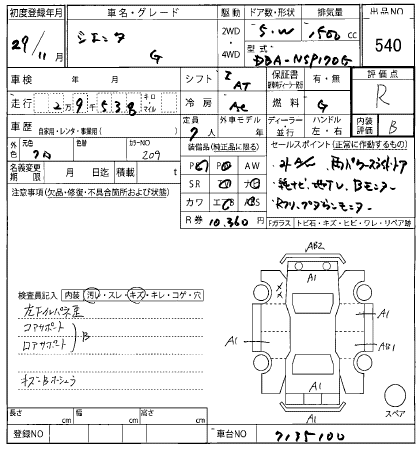 初度登録年月 車名・グレード 駆動 ドア数・形状 排気量 出品NO
29/11月 シエンタ G 2WD・4WD 5.W 1500cc 540
型式 DBA-NSP170G
車検 年 月 シフト IAT 保証書 有・無 評価点
走行 2万9千538 キロ・マイル 冷房 AC 燃料 G R
車歴 自家用・レンタ・事業用( ) 定員 7人 外車モデル 年 ディーラー・並行 ハンドル 左・右 内装評価 B
外色 元色 クロ 色替 カラーNO 209
装備品(純正品に限る) セールスポイント(正常に作動するもの)
名義変更期限 月 日迄 積載 t
PS PW AW
SR ナビ
カワ エアB ABS
R券 10,360円
両パワースライドドア
純ナビ 地TV Bモニター
注意事項(欠品・修復・不具合箇所および状態)
Fガラス トビ石・キズ・ヒビ・ワレ・リペア跡
検査員記入 内装 汚れ・スレ・キズ・キレ・コゲ・穴
コアサポート
ロアサポート
B
AB2
A1
A1
A1
A1
AB1
A1
A1
スペア
長さ cm 幅 cm 高さ cm
登録NO 車台NO 7135100